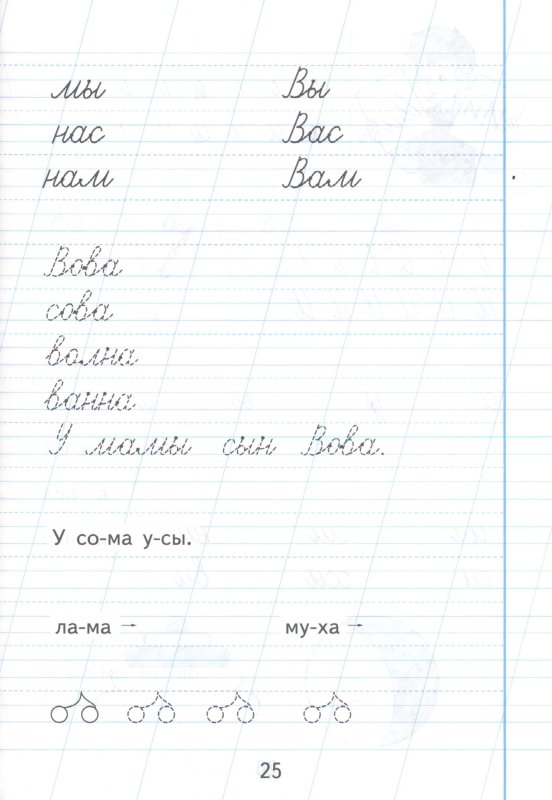 мы Вы
нас Вас
нам Вам
Вова
сова
волна
ванна
У мамы сын Вова.
У со-ма у-сы.
ла-ма → му-ха →
25